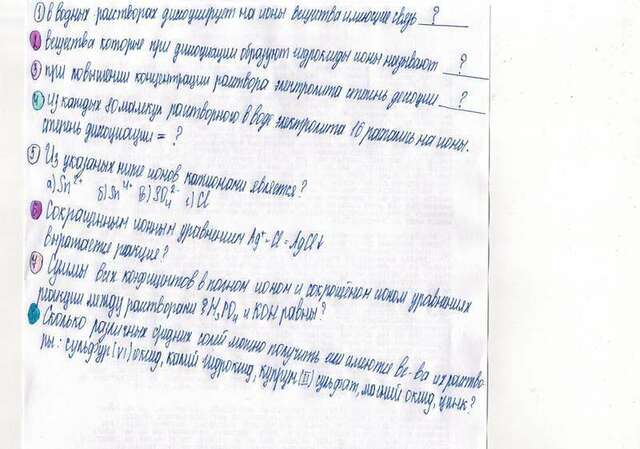 ① в водных растворах диссоциирует на ионы вещества имеющие связь ?
2 вещества которые при диссоциации образуют гидроксиды ионы называют ?
3 при повышении концентрации раствора электролита степень диссоции ?
4 Из каждых 80 молекул растворного в воде электролита 16 распались на ионы.
степень диссоциации = ?
5 Из указаных ниже ионов катионами является?
а) Sn²⁺ б) Sn⁴⁺ в) SO₄²⁻ г) Cl
6 Сокращенным ионным уравнением Ag⁺ + Cl = AgCl↓
выражается реакция?
7 Суммы всех коефицентов в полном ионом и сокращёном ионом уравнениях
реакции между растворами H₃PO₄ и KOH равны?
8 Сколько различных средних солей можно получить если имеются ве-ва и их раство-
ры: сульфур (VI) оксид, калий гидроксид, купрум (II) сульфат, магний оксид, цинк?